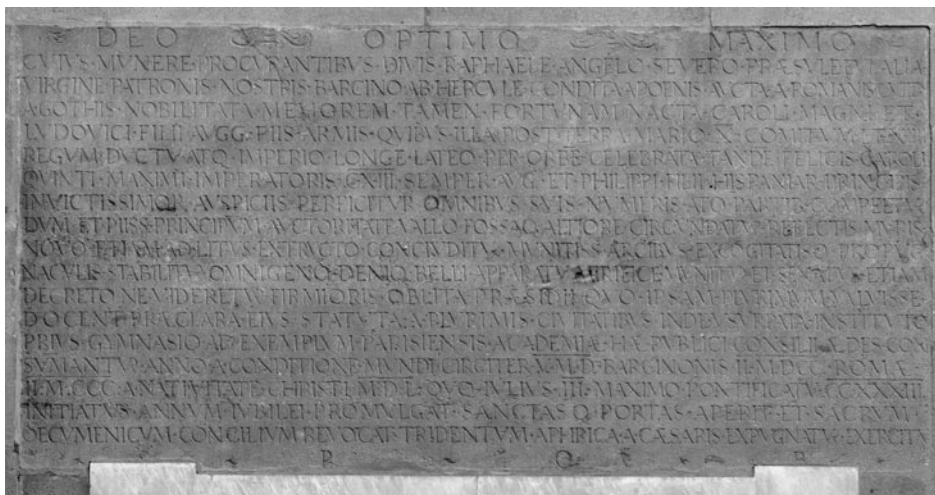 DEO OPTIMO MAXIMO
CVIVS·MVNERE·PROCVRANTIBVS·DIVIS·RAPHAELE·ANGELO·SEVERO·PRÆSVLE·EVLALIA
VIRGINE·PATRONIS·NOSTRIS·BARCINO·AB·HERCVLE·CONDITA·A·POENIS·AVCTA·A·ROMANIS·CVLTA
AGOTHIS·NOBILITATA·MELIOREM·TAMEN·FORTVNAM·NACTA·CAROLI·MAGNI·ET·
LVDOVICI·FILII·AVGG·PIIS·ARMIS·QVIBVS·ILLA·POST·TERRA·MARIQ·X·COMITVM·
REGVM·DVCTV·ATQ·IMPERIO·LONGE·LATEQ·PER·ORBE·CELEBRATA·TANDE·FELICIS·CAROLI
QVINTI·MAXIMI·IMPERATORIS·CXIII·SEMPER·AVG·ET·PHILIPPI·FILII·HISPANIAR·PRINCIPIS
INVICTISSIMOR·AVSPICIIS·PERFICITVR·OMNIBVS·SVIS·NVMERIS·ATQ·PARTIB·
DVM·ET·PIISS·PRINCIPVM·AVCTORITATE·VALLO·FOSSAQ·ALTIORE·CIRCVNDATVR·REFECTIS·MVRIS
NOVO·ETIAM·AD·LITVS·EXTRVCTO·CONCLVDITVR·MVNITISS·ARCIBVS·EXCOGITATISQ·PROPVG
NACVLIS·STABILITVR·OMNIGENO·DENIQ·BELLI·APPARATV·MIRIFICE·MVNITVR·ETIAM
DECRETO·NE·VIDERETVR·FIRMIORIS·OBLITA·PRÆSIDII·QVO·IPSAM·PLVRIMVM·VALVISSE·
DOCENT·PRÆCLARA·EIVS·STATVTA·A·PLVRIMIS·CIVITATIBVS·VSVRPATA·INSTITVTO
PRIVS·GYMNASIO·AD·EXEMPLVM·PARISIENSIS·ACADEMIÆ·HÆ·PVBLICI·CONSILII·ÆDES·CON
SVMANTVR·ANNO·A·CONDITIONE·MVNDI·CIRCITER·V·M·D·BARCINONIS·II·M·DCC·ROMÆ·
II·M·CCC·A·NATIVITATE·CHRISTI·M·D·L·QVO·IVLIVS·III·MAXIMO·PONTIFICATV·CCXXXIII·
INITIATVS·ANNVM·IVBILEI·PROMVLGAT·SANCTASQ·PORTAS·APERIT·ET·SACRVM·
OECVMENICVM·CONCILIVM·REVOCAT·TRIDENTVM·APHRICA·A·CÆSARIS·EXPVGNATVR·EXERCITV